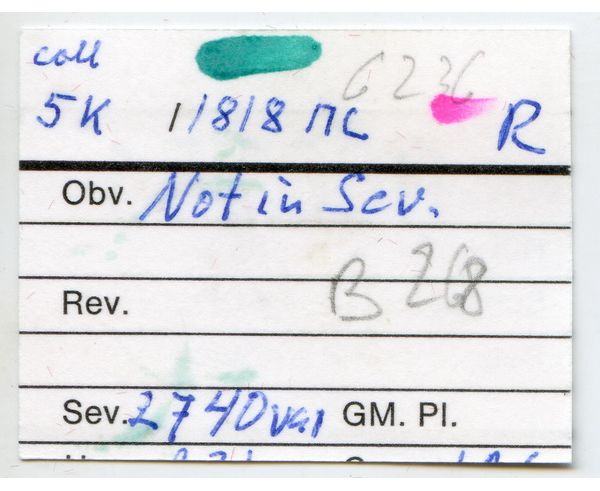 coll 6236
5K 1/1818 ПС R
Obv. Not in Sev.
B 268
Rev.
Sev. 2740 var GM. Pl.